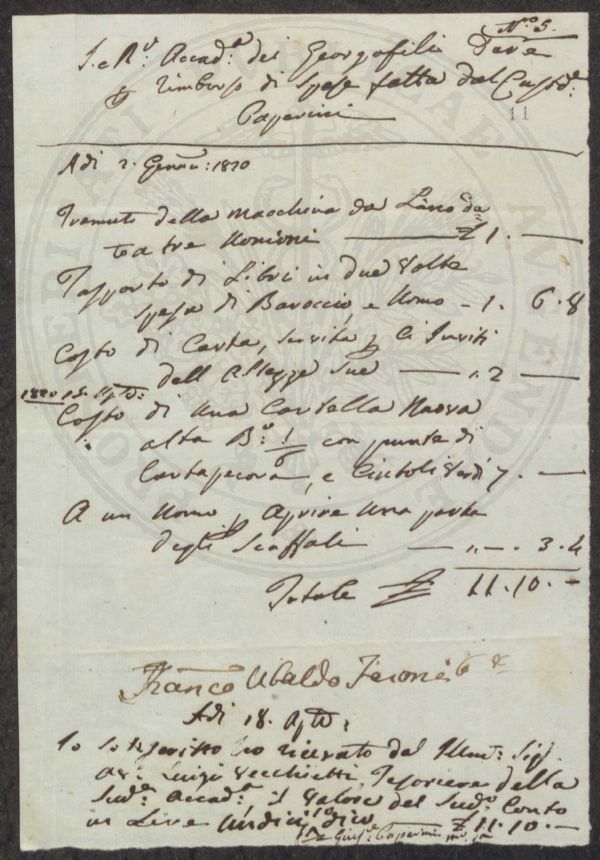 N.º 5.
I. e R.ª Accad.ª dei Georgofili Deve
p rimborso di Spese fatta dal Custd.e
Paperini
11
Adi 2. Genna: 1820
della Macchina da
tre Unioni £ 1. —
Trapporto di Libri in due volte
spesa di Baroccio, e Uomo - 1. 6. 8
Costo di Carta, servita p li Inviti
dell Altezze Sue — „ 2 —
1820 15. Agto:
Costo di una Cartella Nuova
alta B.ª 1/6 con punte di
Cartapecora, e Cintoli Verdi 7. —
A un Uomo p Aprire una porta
degli Scaffali — „ — . 3. 4
Totale £ 11. 10. —
Franco Ubaldo
Adi 18. Agto:
Io Sottoscritto ho ricevuto dal Illmo: Sig.
Luigi Vecchietti, Tesoriere della
Sud.ª Accad.ª il Valore del Sud.º Conto
in Lire Undici, dico £ 11. 10 —
Gius.e Paperini